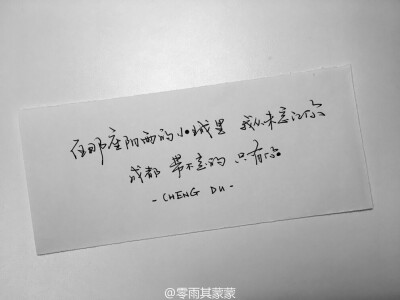 在那座阴雨的小城里 我从未忘记你
成都 带不走的 只有你
- CHENG DU -
@零雨其蒙蒙